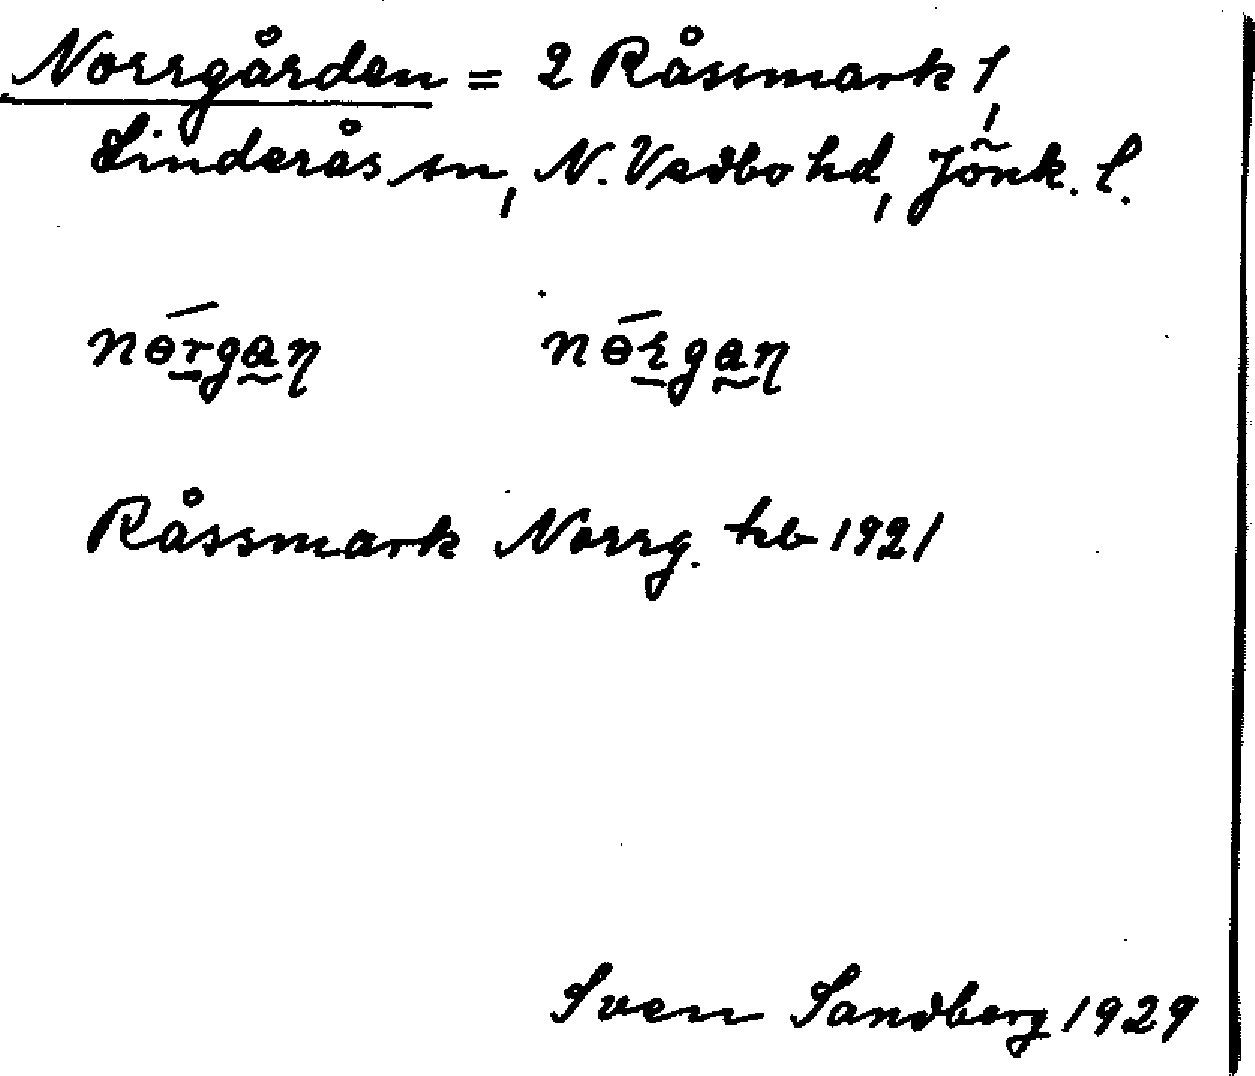 Norrgården = 2 Råssmark 1,
Linderås sn, N. Vedbo hd, Jönk. l.
nɵ́rgan nɵ́rgan
Råssmark Norrg. hb 1921
Sven Sandberg 1929